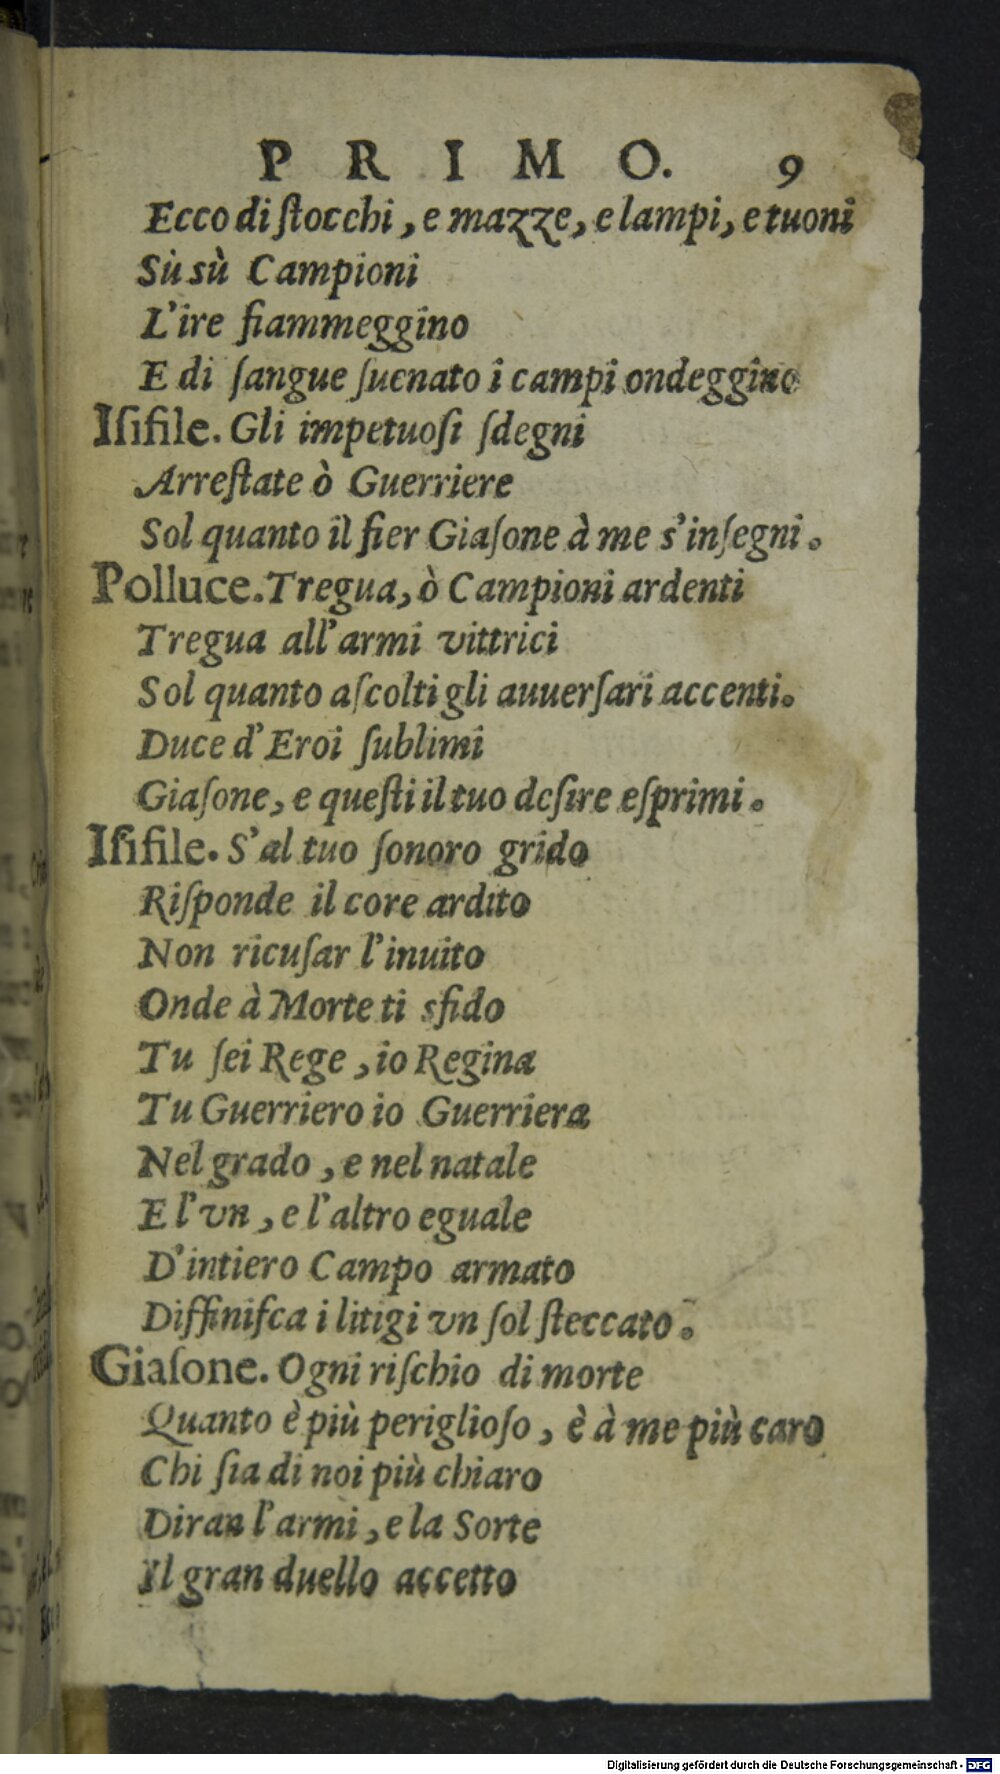 PRIMO. 9
Ecco di ſtocchi, e mazze, e lampi, e tuoni
Sù sù Campioni
L'ire fiammeggino
E di ſangue ſuenato i campi ondeggino
Iſifile. Gli impetuoſi ſdegni
Arreſtate ò Guerriere
Sol quanto il fier Giaſone à me s'inſegni.
Polluce. Tregua, ò Campioni ardenti
Tregua all'armi vittrici
Sol quanto aſcolti gli auuerſari accenti.
Duce d'Eroi ſublimi
Giaſone, e queſti il tuo deſire eſprimi.
Iſifile. S'al tuo ſonoro grido
Riſponde il core ardito
Non ricuſar l'inuito
Onde à Morte ti sfido
Tu ſei Rege, io Regina
Tu Guerriero io Guerriera
Nel grado, e nel natale
E l'vn, e l'altro eguale
D'intiero Campo armato
Diffinifca i litigi vn ſol ſteccato.
Giaſone. Ogni riſchio di morte
Quanto è più periglioſo, è à me più caro
Chi ſia di noi più chiaro
Diran l'armi, e la Sorte
Il gran duello accetto
Digitalisierung gefördert durch die Deutsche Forschungsgemeinschaft - DFG